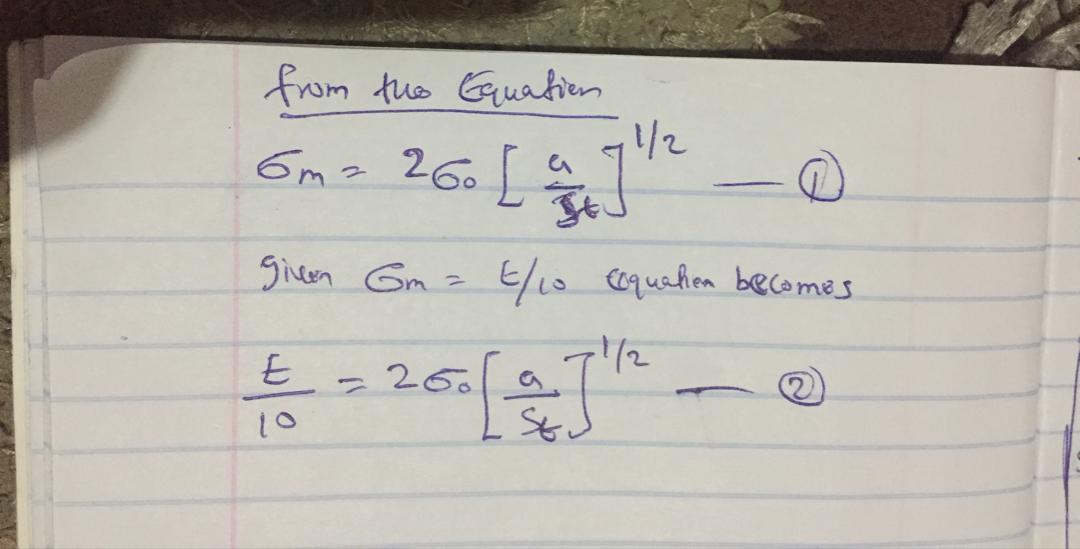 from the Equation
σm = 2σo [ a / St ]^1/2 — ①
given σm = E/10 equation becomes
E / 10 = 2σo [ a / St ]^1/2 — ②